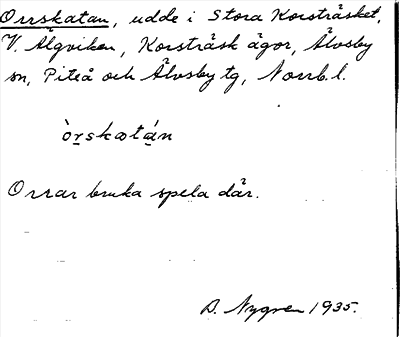 Orrskatan, udde i Stora Korsträsket,
V. Älgviken, Korsträsk ägor, Älvsby
sn, Piteå och Älvsby tg, Norrb. l.
òrskatán
Orrar bruka spela där.
D. Nygren 1935.